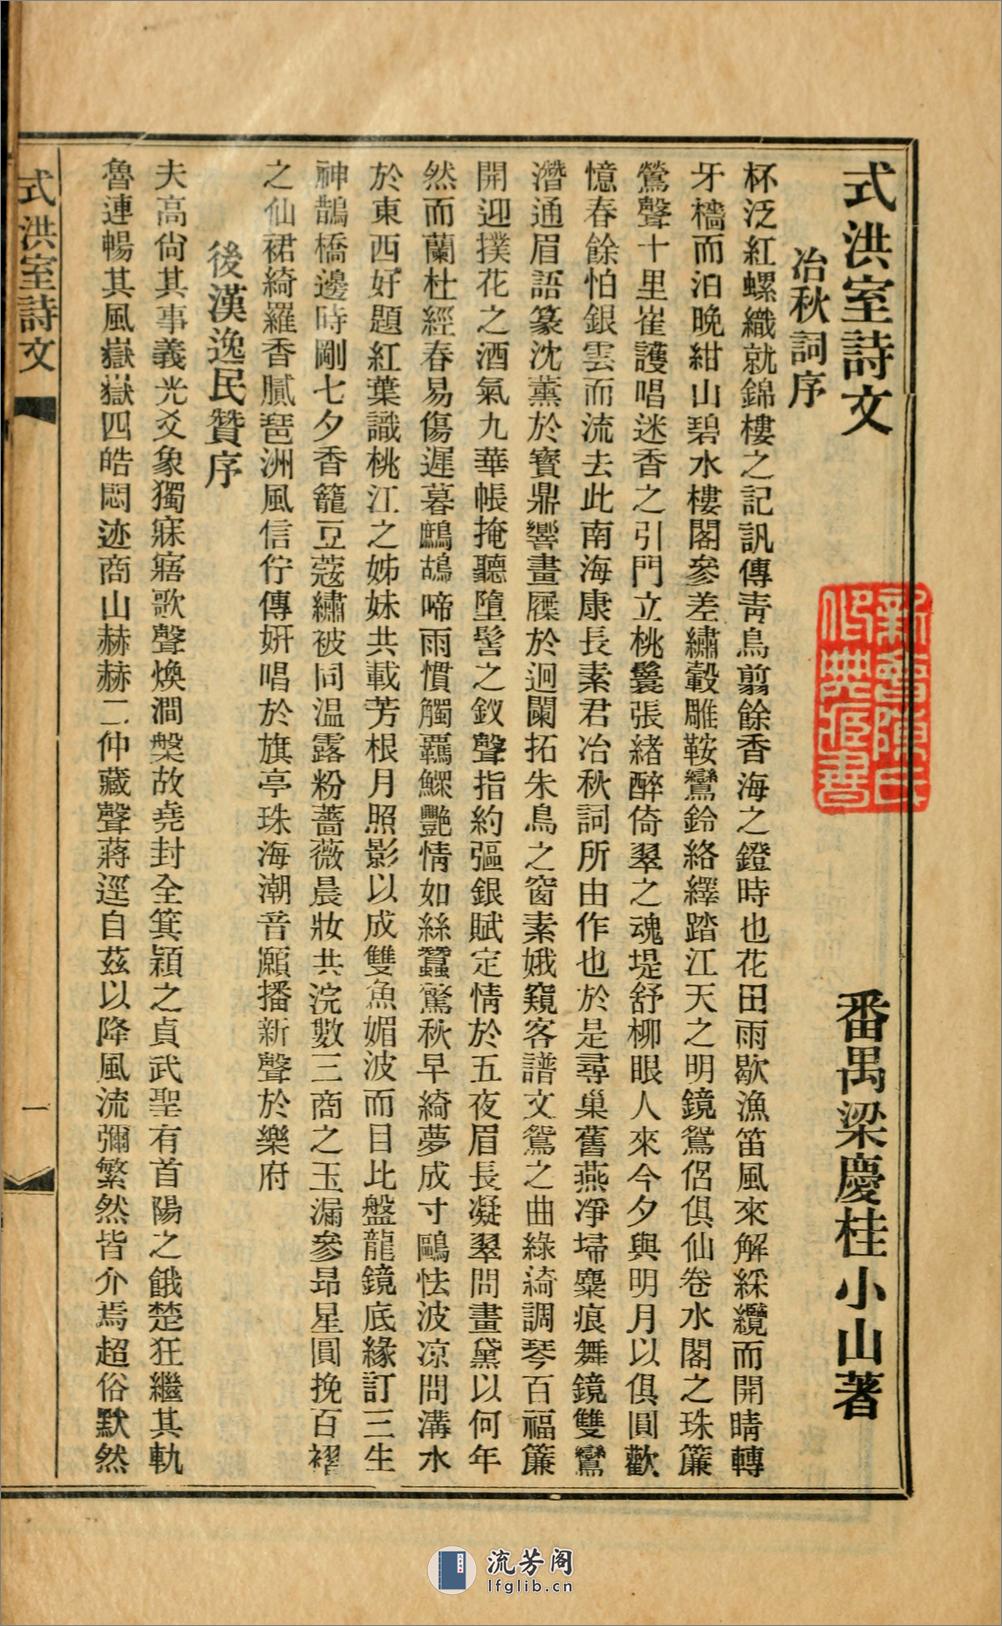 式洪室詩文　番禺梁慶桂小山著
冶秋詞序
杯泛紅螺織就錦樓之記訊傳靑鳥翦餘香海之鐙時也花田雨歇漁笛風來解綵纜而開晴轉
牙檣而泊晚紺山碧水樓閣參差繡轂雕鞍鸞鈴絡繹踏江天之明鏡鴛侶俱仙卷水閣之珠簾
鶯聲十里崔護唱迷香之引門立桃鬟張緒醉倚翠之魂堤舒柳眼人來今夕與明月以俱圓歡
憶春餘怕銀雲而流去此南海康長素君冶秋詞所由作也於是尋巢舊燕凈埽麋痕舞鏡雙鸞
潛通眉語篆沈薰於寶鼎響畫屧於迴闌拓朱鳥之窗素娥窺客譜文鴛之曲綠綺調琴百福簾
開迎撲花之酒氣九華帳掩聽墮髻之釵聲指約彄銀賦定情於五夜眉長凝翠問畫黛以何年
然而蘭杜經春易傷遲暮鷓鴣啼雨慣觸羈鰥艷情如絲蠶驚秋早綺夢成寸鷗怯波凉問溝水
於東西好題紅葉識桃江之姊妹共載芳根月照影以成雙魚媚波而目比盤龍鏡底緣訂三生
神鵲橋邊時剛七夕香籠豆蔻繡被同温露粉薔薇晨妝共浣數三商之玉漏參昻星圓挽百褶
之仙裙綺羅香膩琶洲風信佇傳姸唱於旗亭珠海潮音願播新聲於樂府
後漢逸民贊序
夫高尙其事義光爻象獨寐寤歌聲煥澗槃故堯封全箕潁之貞武聖有首陽之餓楚狂繼其軌
魯連暢其風嶽嶽四皓悶迹商山赫赫二仲藏聲蔣逕自茲以降風流彌繁然皆介焉超俗默然
式洪室詩文
一
新會陳氏
流芳阁
lfglib.cn